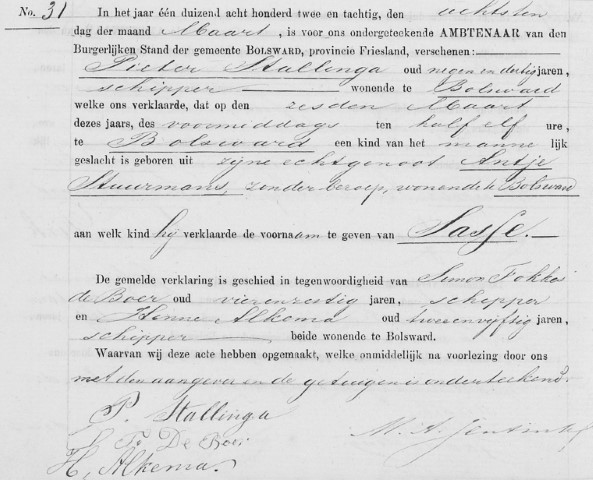 No. 31 In het jaar één duizend acht honderd twee en tachtig, den achtsten
dag der maand Maart, is voor ons ondergeteekende AMBTENAAR van den
Burgerlijken Stand der gemeente BOLSWARD, provincie Friesland, verschenen:
Pieter Stallinga oud negen en dertig jaren,
schipper wonende te Bolsward
welke ons verklaarde, dat op den zesden Maart
dezes jaars, des voormiddags ten half elf ure,
te Bolsward een kind van het mannelijk
geslacht is geboren uit zijne echtgenoot Antje
Stuurmans, zonder beroep, wonende te Bolsward
aan welk kind hij verklaarde de voornaam te geven van Sasse.
De gemelde verklaring is geschied in tegenwoordigheid van Simon Fokkes
de Boer oud vierenzestig jaren, schipper
en Henne Alkema oud tweeenvijftig jaren,
schipper beide wonende te Bolsward.
Waarvan wij deze acte hebben opgemaakt, welke onmiddelijk na voorlezing door ons
met den aangever en de getuigen is onderteekend.
P. Stallinga
De Boer
H. Alkema.